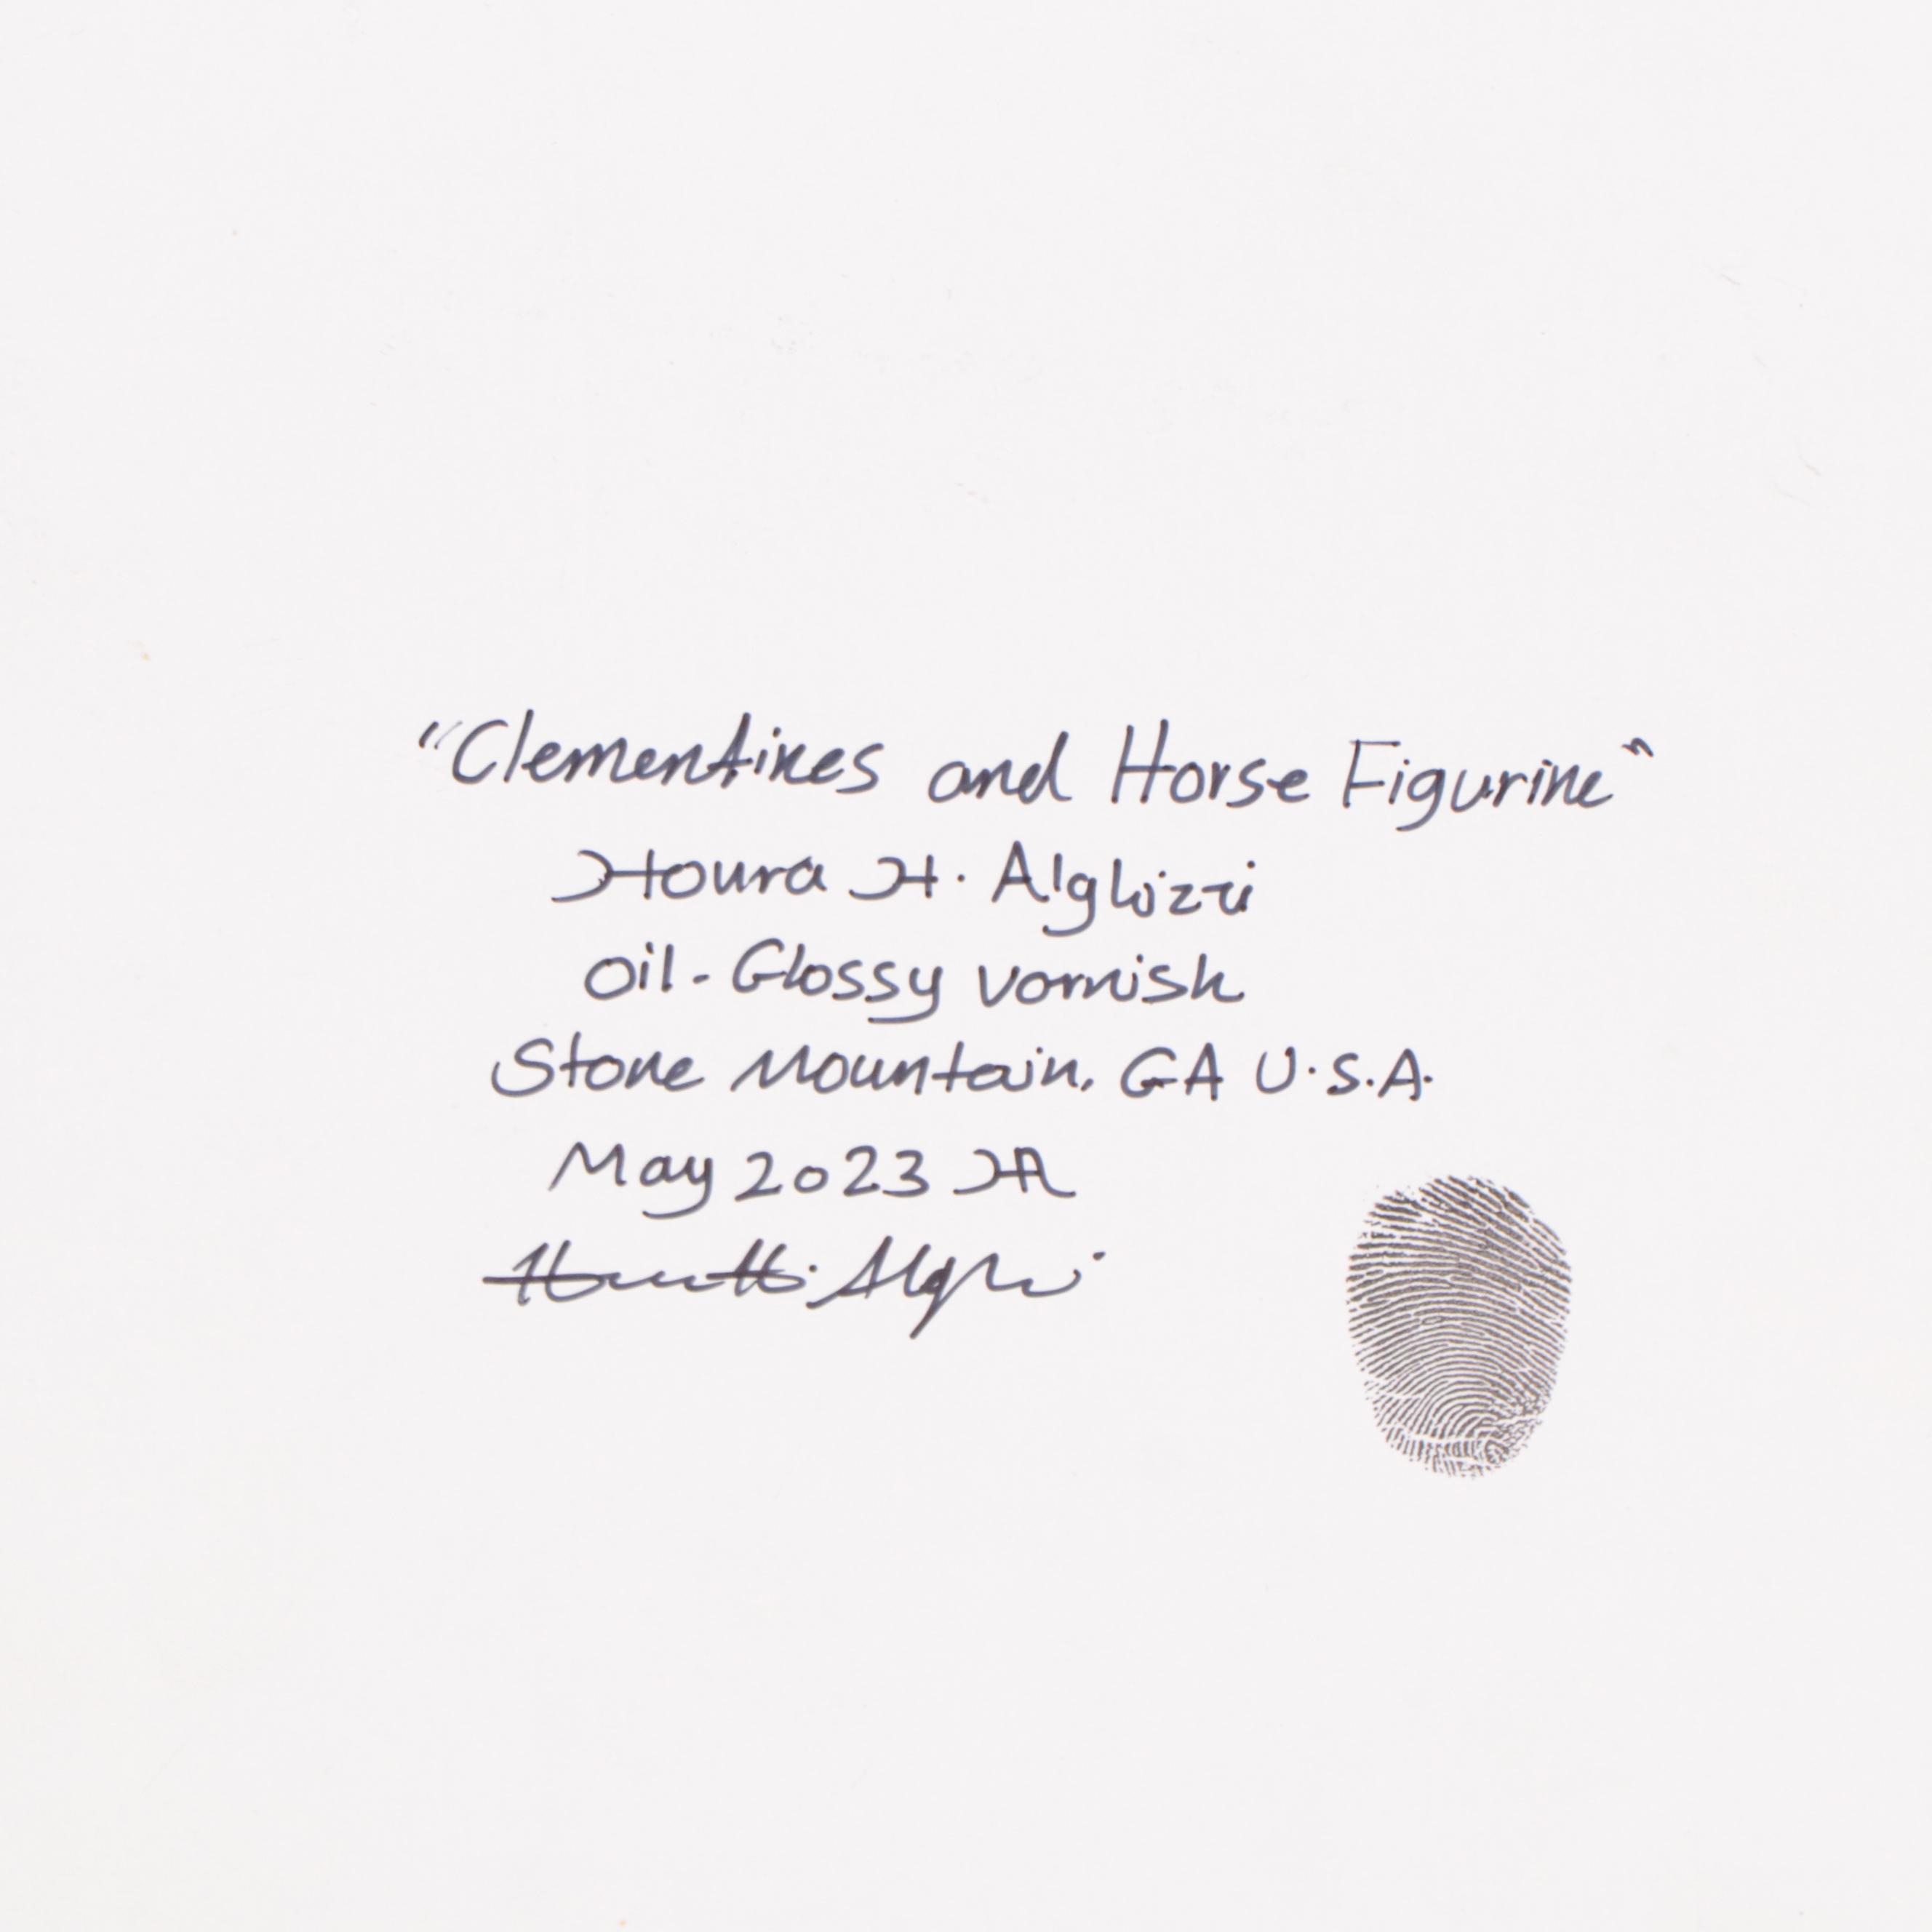 "Clementines and Horse Figurine"
Houra H. Alghizzi
Oil - Glossy varnish
Stone Mountain, GA U.S.A.
May 2023 HA